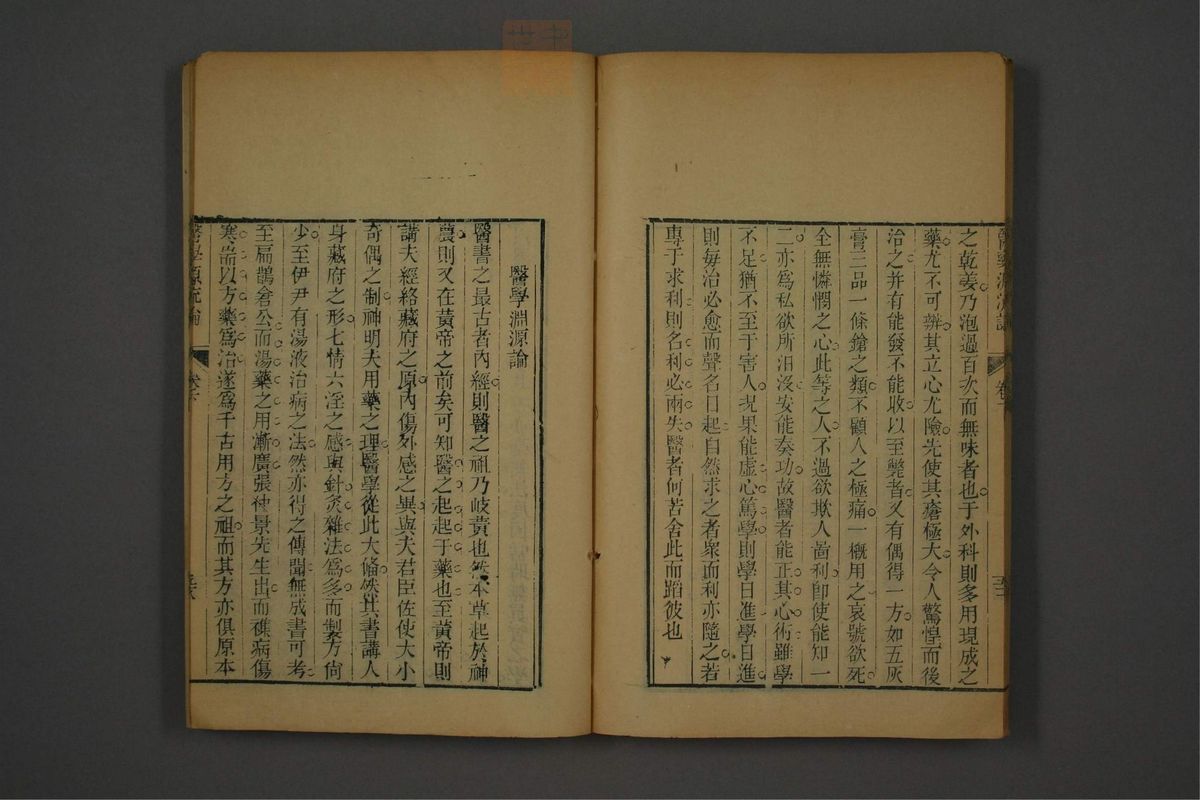 之乾姜乃泡過百次而無味者也于外科則多用現成之
藥尤不可辨其立心尤險先使其瘡極大令人驚惶而後
治之并有能發不能收以至斃者又有偶得一方如五灰
膏三品一條鎗之類不顧人之極痛一概用之哀號欲死
全無憐憫之心此等之人不過欲欺人圖利卽使能知一
二亦爲私欲所汨沒安能奏功故醫者能正其心術雖學
不足猶不至于害人况果能虛心篤學則學日進學日進
則每治必愈而聲名日起自然求之者衆而利亦隨之若
專于求利則名利必兩失醫者何苦舍此而蹈彼也
醫學淵源論
醫書之最古者內經則醫之祖乃岐黃也然本草起於神
農則又在黃帝之前矣可知醫之起起于藥也至黃帝則
講夫經絡藏府之原內傷外感之異與夫君臣佐使大小
奇偶之制神明夫用藥之理醫學從此大備然其書講人
身藏府之形七情六淫之感與針灸雜法爲多而製方尙
少至伊尹有湯液治病之法然亦得之傳聞無成書可考
至扁鵲倉公而湯藥之用漸廣張仲景先生出而雜病傷
寒耑以方藥爲治遂爲千古用方之祖而其方亦俱原本
醫學源流論